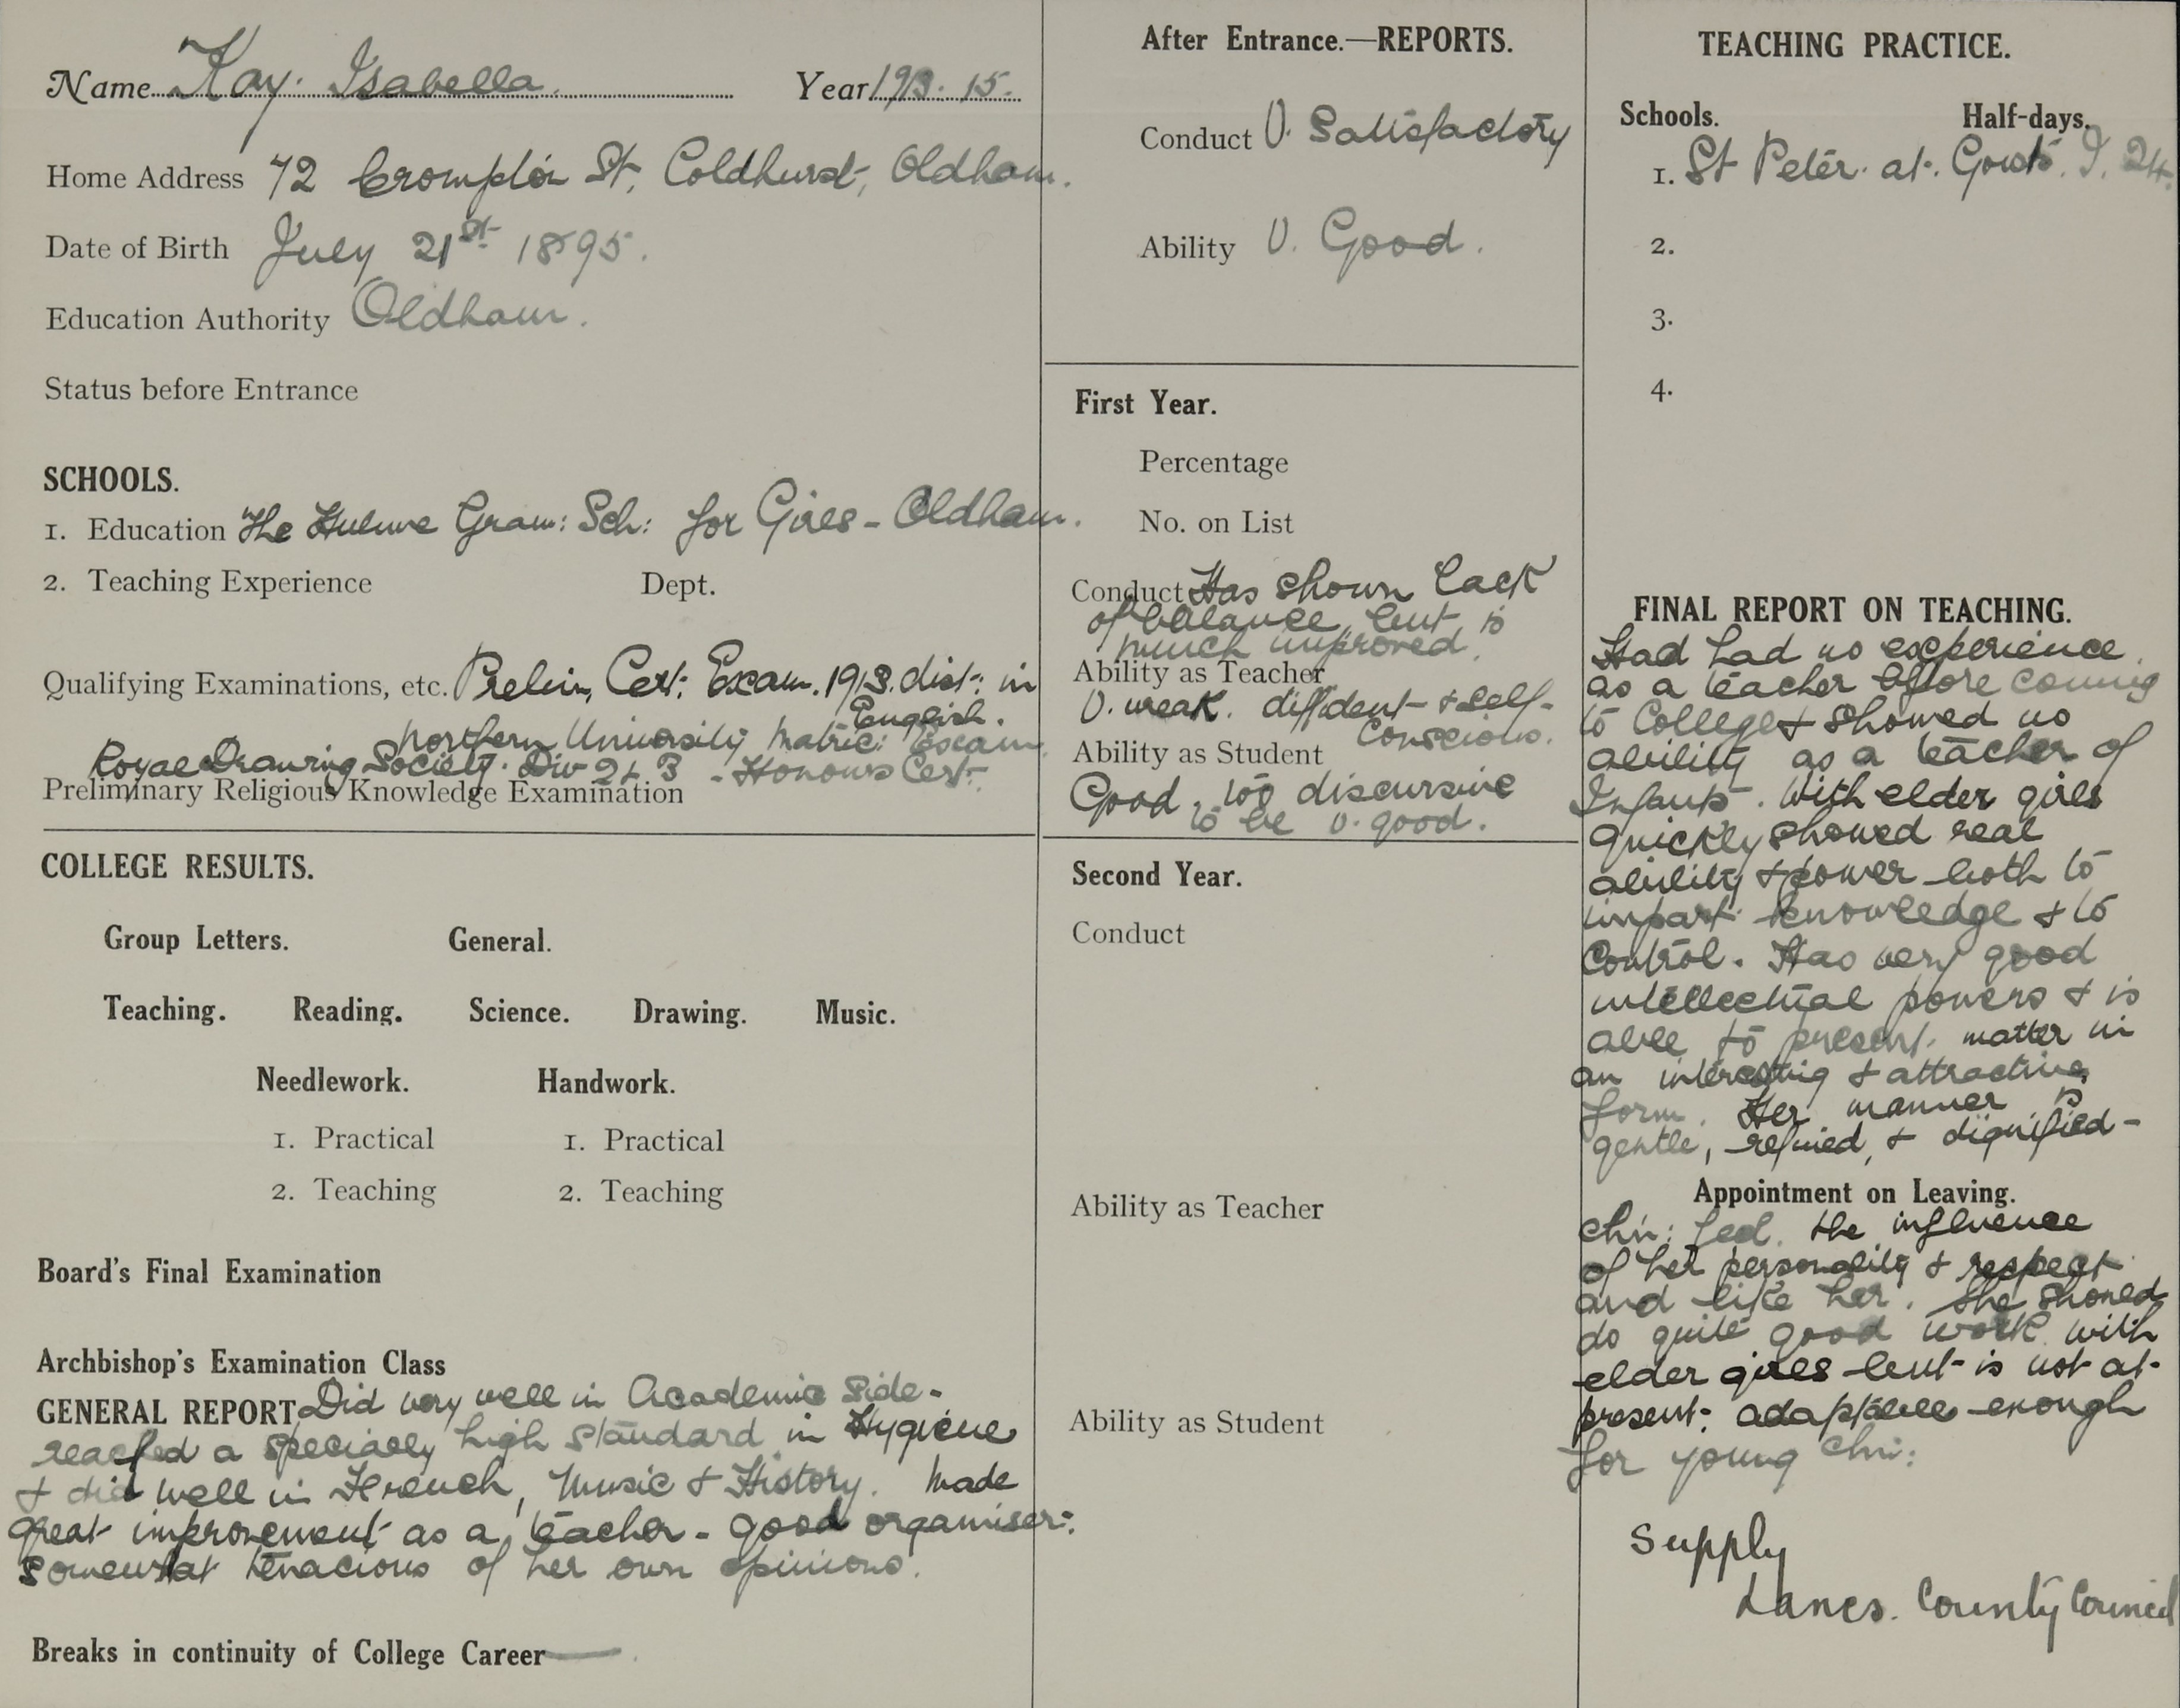 Name Kay. Isabella. Year 1913. 15.
Home Address 72 Crompton St, Coldhurst, Oldham.
Date of Birth July 21st 1895.
Education Authority Oldham.
Status before Entrance
SCHOOLS.
1. Education The Hulme Gram: Sch: for Girls - Oldham.
2. Teaching Experience Dept.
Qualifying Examinations, etc. Prelim, Cert: Exam. 1913. dist: in
English.
Northern University Matric: Exam.
Royal Drawing Society. Div 2 & 3 - Honours Cert:
Preliminary Religious Knowledge Examination
COLLEGE RESULTS.
Group Letters. General.
Teaching. Reading. Science. Drawing. Music.
Needlework. Handwork.
1. Practical 1. Practical
2. Teaching 2. Teaching
Board's Final Examination
Archbishop's Examination Class
GENERAL REPORT Did very well in Academic Side -
reached a specially high standard in Hygiene
& did well in French, Music & History. Made
great improvement as a teacher - good organiser:
somewhat tenacious of her own opinions.
Breaks in continuity of College Career —.
After Entrance.—REPORTS.
Conduct V. Satisfactory
Ability V. Good.
First Year.
Percentage
No. on List
Conduct Has shown lack
of balance, but is
much improved.
Ability as Teacher
V. weak. diffident & self-
conscious.
Ability as Student
Good, too discursive
to be v. good.
Second Year.
Conduct
Ability as Teacher
Ability as Student
TEACHING PRACTICE.
Schools. Half-days.
1. St Peter. at. Gowts. I. 24.
2.
3.
4.
FINAL REPORT ON TEACHING.
Had had no experience
as a teacher before coming
to College & showed no
ability as a teacher of
Infants. With elder girls
quickly showed real
ability & power both to
impart knowledge & to
control. Has very good
intellectual powers & is
able to present matter in
an interesting & attractive
form. Her manner is
gentle, refined, & dignified -
Appointment on Leaving.
chn: feel the influence
of her personality & respect
and like her. She should
do quite good work with
elder girls but is not at
present: adaptable enough
for young chn:
Supply
Lancs. County Council